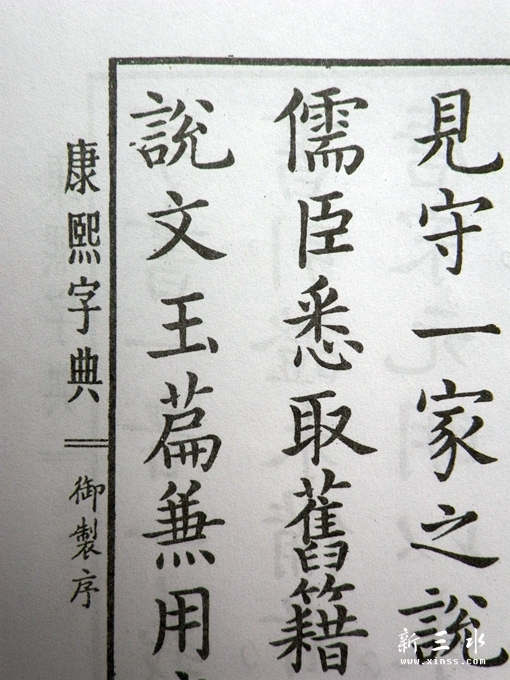 見守一家之說
儒臣悉取舊籍
說文玉篇兼用
康熙字典
御製序
新三水
www.xinss.com